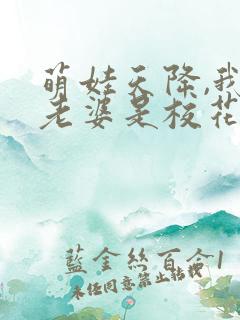 萌娃天降,我
老婆是校花
藍金絲百合1
未經同意禁止轉載